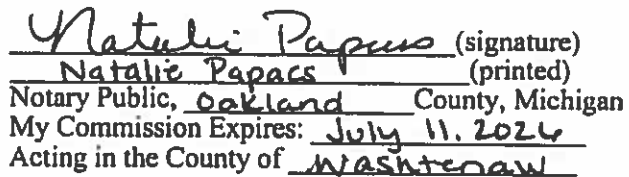 Natalie Papacs (signature)
Natalie Papacs (printed)
Notary Public, Oakland County, Michigan
My Commission Expires: July 11, 2026
Acting in the County of Washtenaw